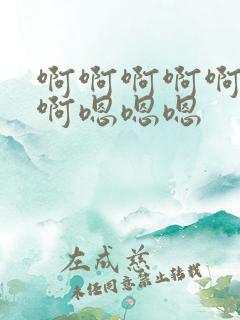 啊啊啊啊啊
啊嗯嗯嗯
左成慈
未经同意禁止转载